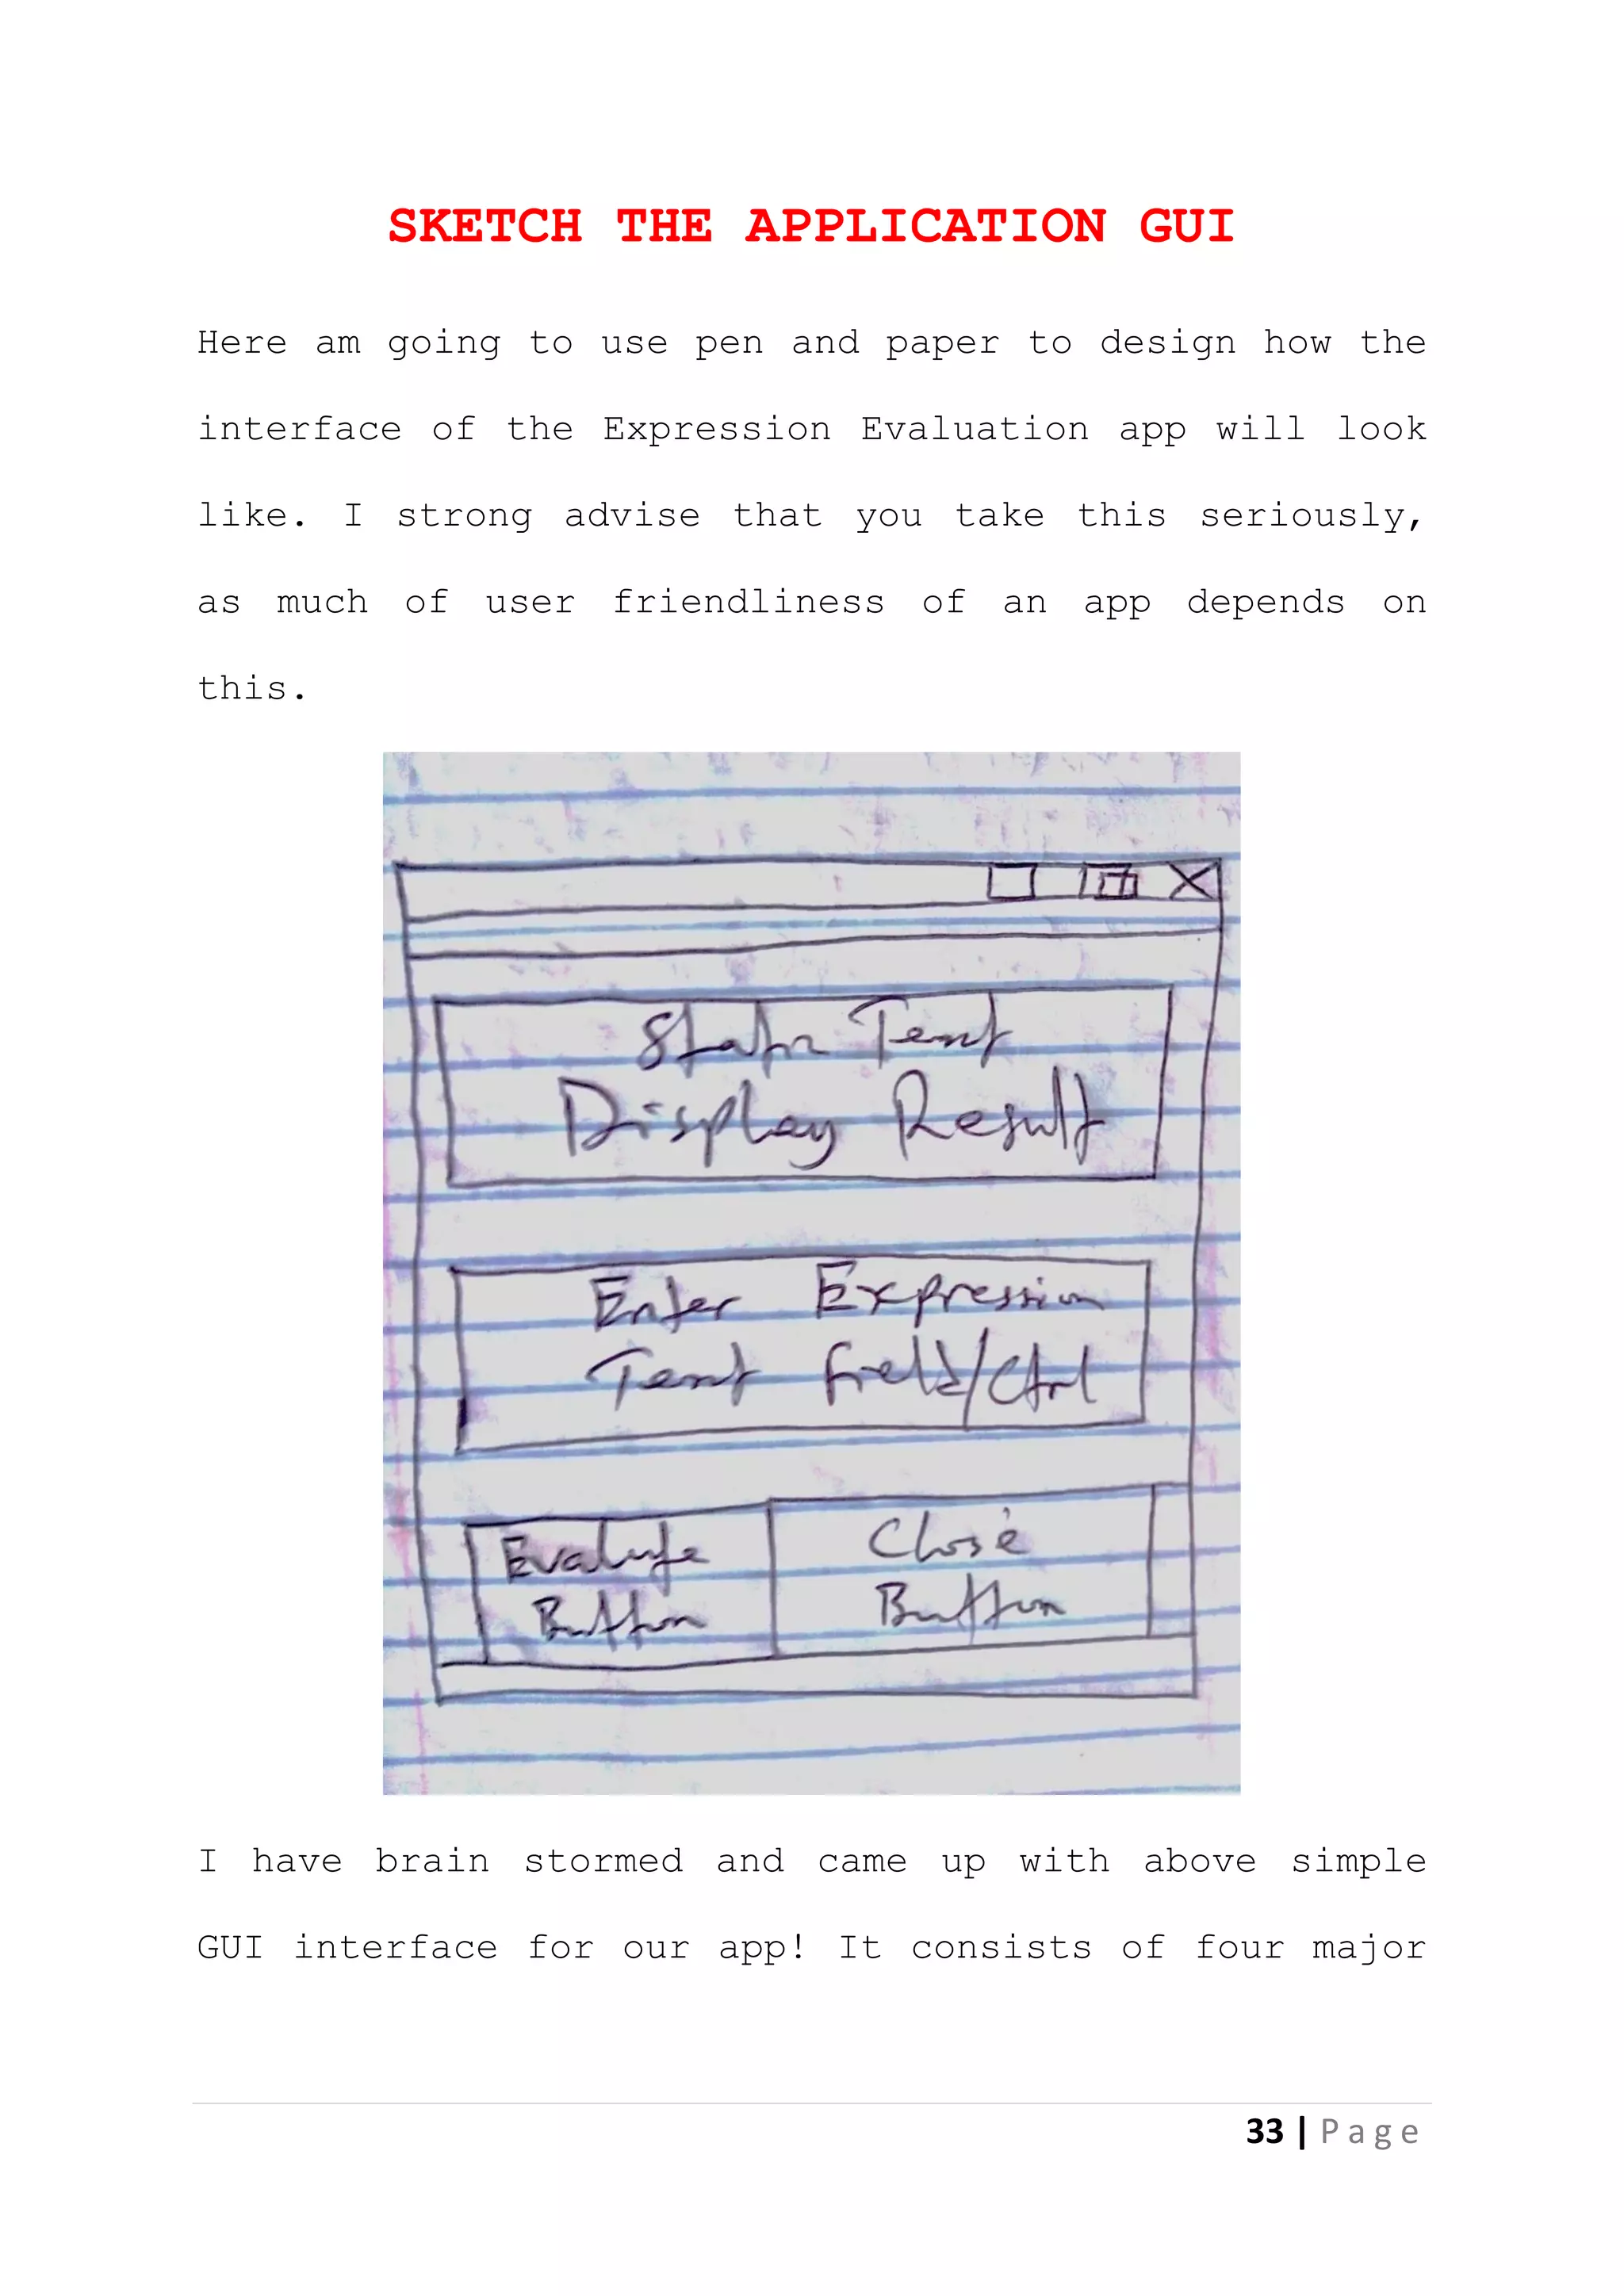 SKETCH THE APPLICATION GUI
Here am going to use pen and paper to design how the
interface of the Expression Evaluation app will look
like. I strong advise that you take this seriously,
as much of user friendliness of an app depends on
this.
Static Text
Display Result
Enter Expression
Text field/Ctrl
Evaluate
Button
Close
Button
I have brain stormed and came up with above simple
GUI interface for our app! It consists of four major
33 | Page